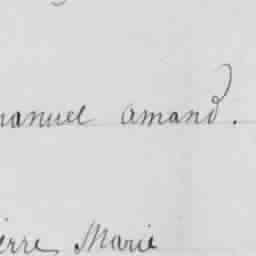 manuel amand.
ierre Marie